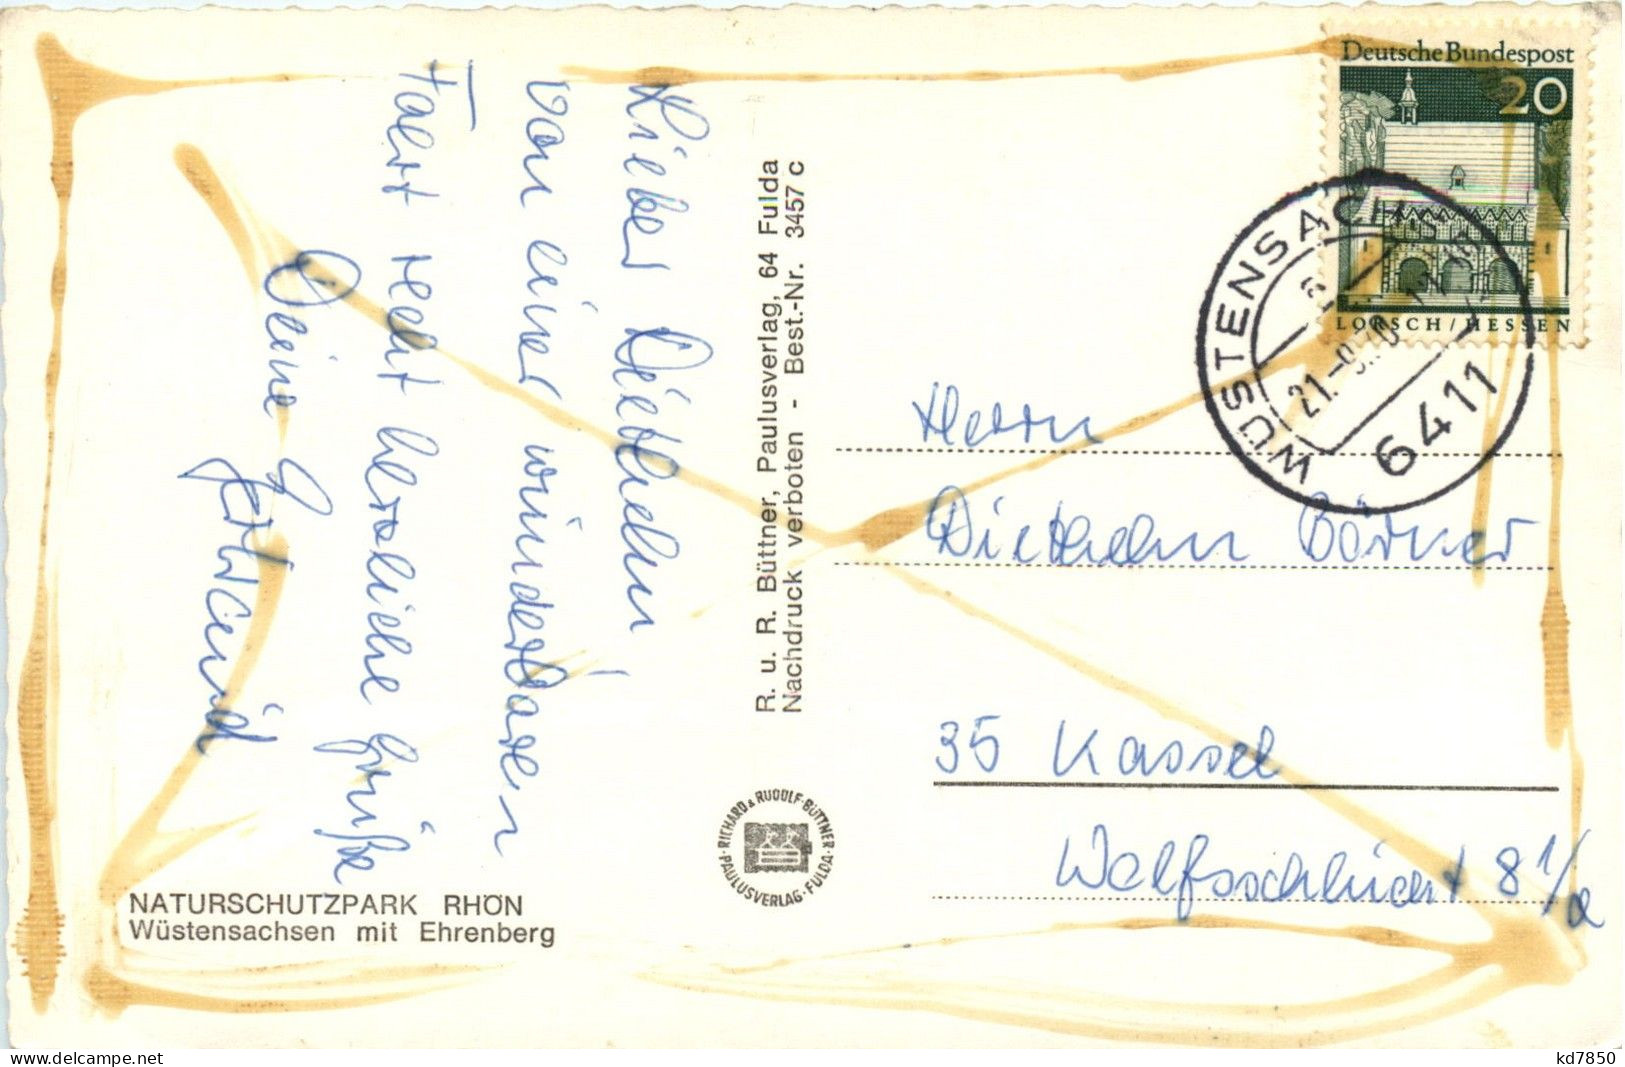 Lieber Diethelm!
von einer wunderbaren
Fahrt recht herzliche Grüße
Deine
R. u. R. Büttner, Paulusverlag, 64 Fulda
Nachdruck verboten - Best.-Nr. 3457 c
NATURSCHUTZPARK RHÖN
Wüstensachsen mit Ehrenberg
RICHARD & RUDOLF BÜTTNER
PAULUSVERLAG · FULDA
Deutsche Bundespost
20
LORSCH/HESSEN
WÜSTENSACHSEN
21.-9.70
6411
Herrn
Diethelm Börner
35 Kassel
Wolfsschlucht 8 1/2
www.delcampe.net
kd7850